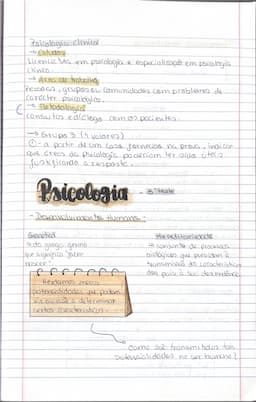 Psicologia clínica
→ Estudos
Licenciatus em psicologia e especialização em psicologia
clínica.
→ Área de trabalho
Pessoas, grupos ou comunidades com problemas de
carácter psicológico.
→ Metodologia
Consultas e diálogo com os pacientes.
→ Grupo 3 (4 valores)
①- a partir de um caso fornecido na prova, indicar
que áreas da psicologia poderiam ter sido úteis
justificando a resposta.
Psicologia - 1º Teste
- Desenvolvimento Humano -
Genética
→ do grego, geno
que significa fazer
nascer
Hereditariedade
→ conjunto de processos
biológicos que presidem à
transmissão de características
dos pais à sua descendência.
Herdamos meras
potencialidades que podem
vir
a determinar
certas características
Como são transmitidas tais
potencialidades no ser humano?